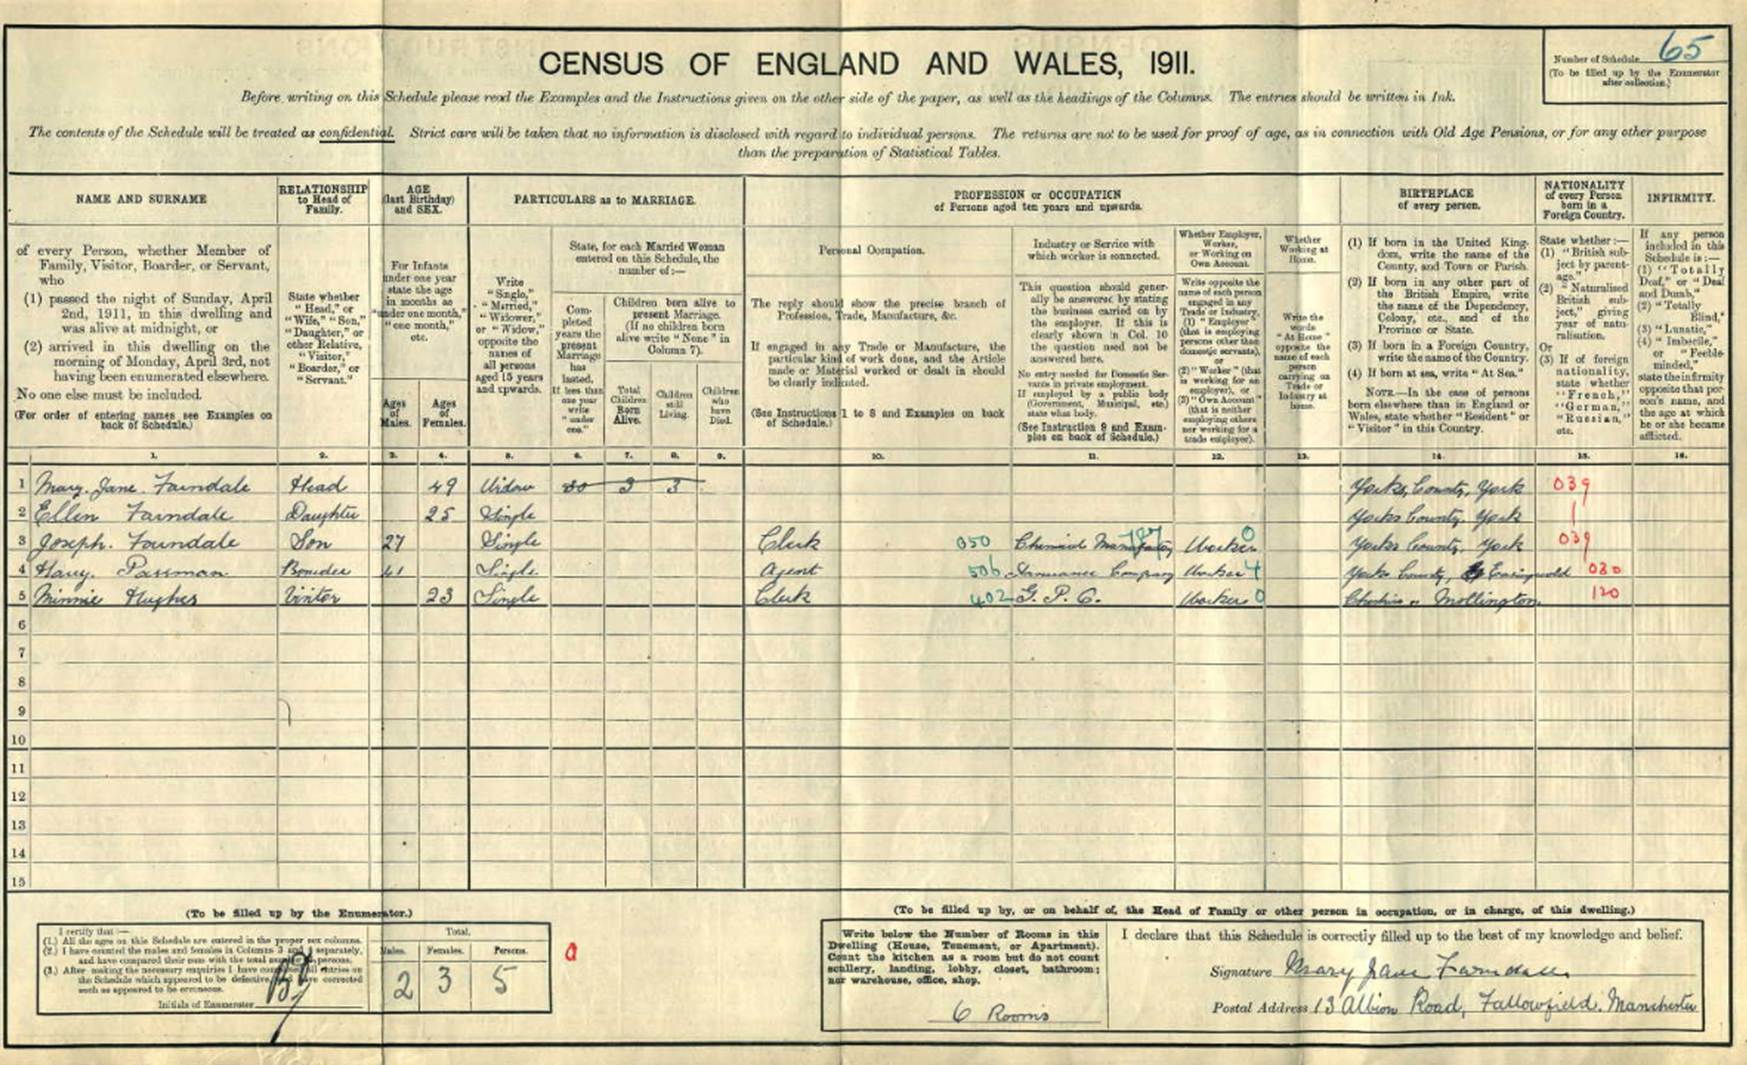 CENSUS OF ENGLAND AND WALES, 1911.
Number of Schedule 65
(To be filled up by the Enumerator after collection.)
Before writing on this Schedule please read the Examples and the Instructions given on the other side of the paper, as well as the headings of the Columns. The entries should be written in Ink.
The contents of the Schedule will be treated as confidential. Strict care will be taken that no information is disclosed with regard to individual persons. The returns are not to be used for proof of age, as in connection with Old Age Pensions, or for any other purpose
than the preparation of Statistical Tables.
NAME AND SURNAME
of every Person, whether Member of
Family, Visitor, Boarder, or Servant,
who
(1) passed the night of Sunday, April
2nd, 1911, in this dwelling and
was alive at midnight, or
(2) arrived in this dwelling on the
morning of Monday, April 3rd, not
having been enumerated elsewhere.
No one else must be included.
(For order of entering names see Examples on
back of Schedule.)
RELATIONSHIP
to Head of
Family.
State whether
"Head," or
"Wife," "Son,"
"Daughter," or
other Relative,
"Visitor,"
"Boarder," or
"Servant."
AGE
(last Birthday)
and SEX.
For Infants
under one year
state the age
in months as
"under one month,"
"one month,"
etc.
Ages
of
Males.
Ages
of
Females.
PARTICULARS as to MARRIAGE.
Write
"Single,"
"Married,"
"Widower,"
or "Widow,"
opposite the
names of
all persons
aged 15 years
and upwards.
State, for each Married Woman
entered on this Schedule, the
number of:—
Completed
years the
present
Marriage
has
lasted.
If less than
one year
write
"under
one."
Children born alive to
present Marriage.
(If no children born
alive write "None" in
Column 7).
Total
Children
Born
Alive.
Children
still
Living.
Children
who
have
Died.
PROFESSION or OCCUPATION
of Persons aged ten years and upwards.
Personal Occupation.
The reply should show the precise branch of
Profession, Trade, Manufacture, &c.
If engaged in any Trade or Manufacture, the
particular kind of work done, and the Article
made or Material worked or dealt in should
be clearly indicated.
(See Instructions 1 to 8 and Examples on back
of Schedule.)
Industry or Service with
which worker is connected.
This question should gener-
ally be answered by stating
the business carried on by
the employer. If this is
clearly shown in Col. 10
the question need not be
answered here.
No entry needed for Domestic Ser-
vants in private employment.
If employed by a public body
(Government, Municipal, etc.)
state what body.
(See Instruction 9 and Exam-
ples on back of Schedule.)
Whether Employer,
Worker,
or Working on
Own Account.
Write opposite the
name of each person
engaged in any
Trade or Industry,
(1) "Employer"
(that is employing
persons other than
domestic servants),
or
(2) "Worker" (that
is working for an
employer), or
(3) "Own Account"
(that is neither
employing others
nor working for a
trade employer).
Whether
Working at
Home.
Write the
words
"At Home"
opposite the
name of each
person
carrying on
Trade or
Industry at
home.
BIRTHPLACE
of every person.
(1) If born in the United King-
dom, write the name of the
County, and Town or Parish.
(2) If born in any other part of
the British Empire, write
the name of the Dependency,
Colony, etc., and of the
Province or State.
(3) If born in a Foreign Country,
write the name of the Country.
(4) If born at sea, write "At Sea."
NOTE.—In the case of persons
born elsewhere than in England or
Wales, state whether "Resident" or
"Visitor" in this Country.
NATIONALITY
of every Person
born in a
Foreign Country.
State whether:—
(1) "British sub-
ject by parent-
age."
(2) "Naturalised
British sub-
ject," giving
year of natu-
ralisation.
Or
(3) If of foreign
nationality,
state whether
"French,"
"German,"
"Russian,"
etc.
INFIRMITY.
If any person
included in this
Schedule is:—
(1) "Totally
Deaf," or "Deaf
and Dumb,"
(2) "Totally
Blind,"
(3) "Lunatic,"
(4) "Imbecile,"
or "Feeble-
minded,"
state the infirmity
opposite that per-
son's name, and
the age at which
he or she became
afflicted.
1. 2. 3. 4. 5. 6. 7. 8. 9. 10. 11. 12. 13. 14. 15. 16.
1 Mary Jane Farndale Head 49 Widow 3 3 Yorks, County, York 039
2 Ellen Farndale Daughter 25 Single Yorks County. York
3 Joseph. Farndale Son 27 Single Clerk 050 Chemical Manufactory 787 Worker 0 Yorks County. York 039
4 Harry. Passman Boarder 41 Single Agent 506 Insurance Company Worker 4 Yorks County, Easingwold 030
5 Minnie Hughes Visitor 23 Single Clerk 402 G. P. O. Worker 0 Cheshire Mollington. 120
6
7
8
9
10
11
12
13
14
15
(To be filled up by the Enumerator.)
I certify that:—
(1.) All the ages on this Schedule are entered in the proper sex columns.
(2.) I have counted the males and females in Columns 3 and 4 separately,
and have compared their sum with the total number of persons.
(3.) After making the necessary enquiries I have completed all entries on
the Schedule which appeared to be defective, and have corrected
such as appeared to be erroneous.
Initials of Enumerator
Total.
Males. Females. Persons.
2 3 5
a
(To be filled up by, or on behalf of, the Head of Family or other person in occupation, or in charge, of this dwelling.)
Write below the Number of Rooms in this
Dwelling (House, Tenement, or Apartment).
Count the kitchen as a room but do not count
scullery, landing, lobby, closet, bathroom;
nor warehouse, office, shop.
6 Rooms
I declare that this Schedule is correctly filled up to the best of my knowledge and belief.
Signature Mary Jane Farndale
Postal Address 13 Albion Road, Fallowfield. Manchester